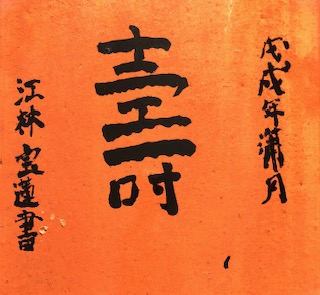 戊戌年蒲月
壽
江林蓮書